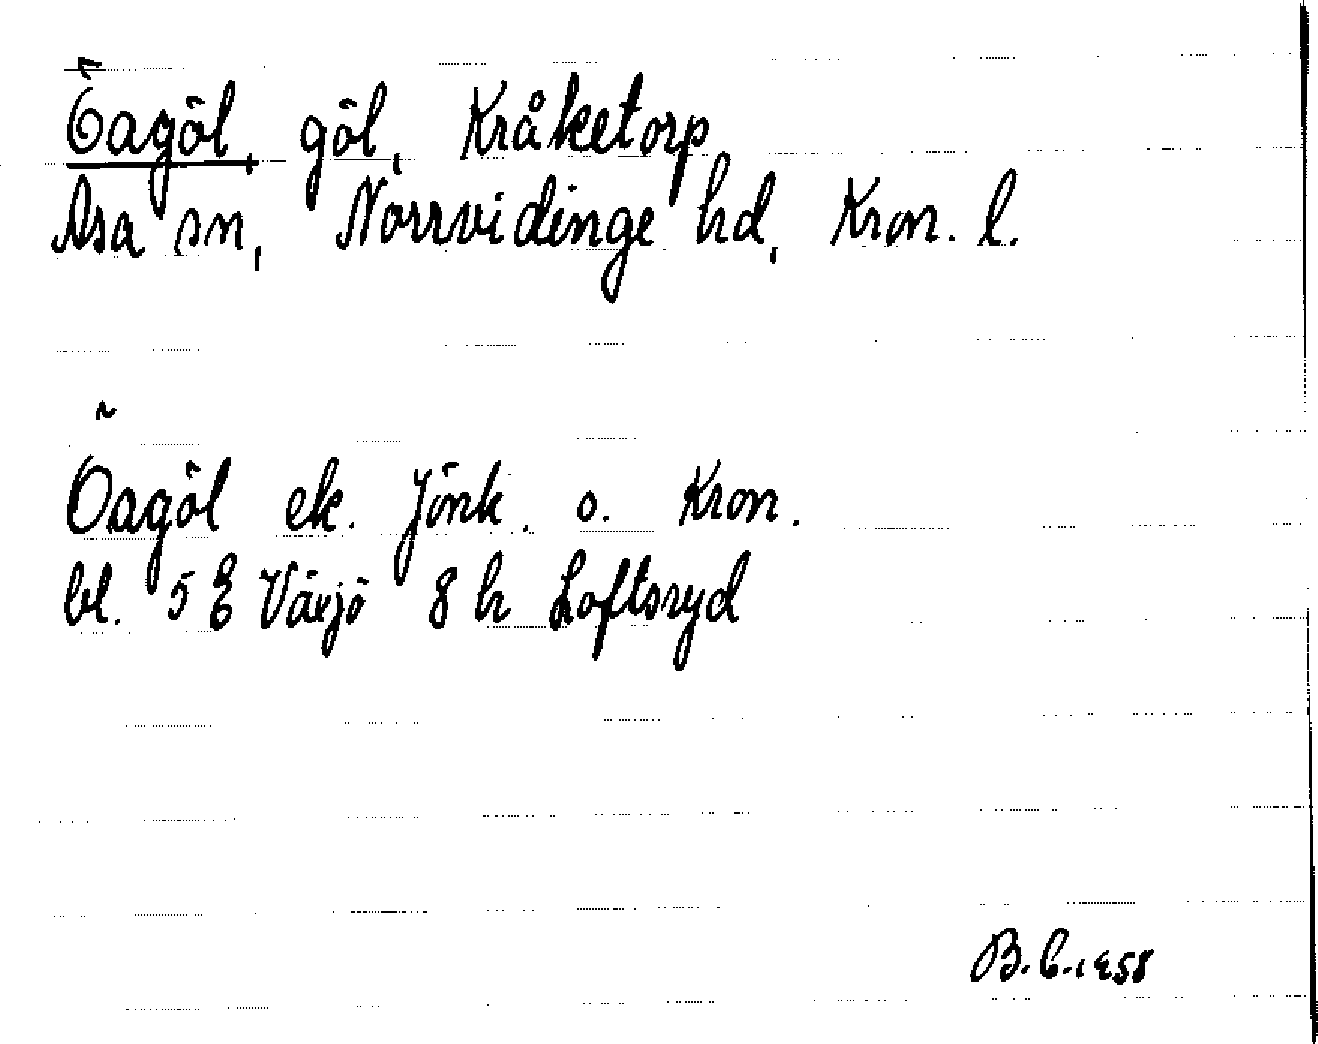 Öagöl, göl, Kråketorp
Asa sn, Norrvidinge hd, Kron. l.
Öagöl ek. Jönk. o. Kron.
bl. 5 E Växjö 8 h Loftsryd
B.E. 1958